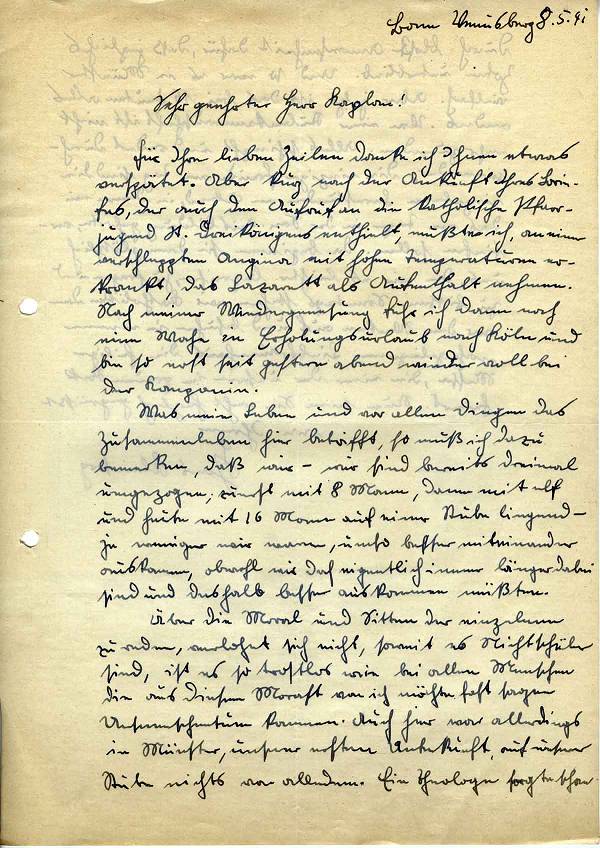 Bonn Venusberg 8.5.41
Sehr geehrter Herr Kaplan!
Für Ihre lieben Zeilen danke ich Ihnen etwas
verspätet. Aber kurz nach der Ankunft Ihres Brie-
fes, der auch den Aufruf an die katholische Pfarr-
jugend St. Dreikönigen enthielt, mußte ich, an einer
verschleppten Angina mit hohen Temperaturen er-
krankt, das Lazarett als Aufenthalt nehmen.
Nach meiner Wiedergenesung fuhr ich dann noch
eine Woche in Erholungsurlaub nach Köln und
bin so erst seit gestern abend wieder voll bei
der Kompanie.
Was mein Leben und vor allen Dingen das
Zusammenleben hier betrifft, so muß ich dazu
bemerken, daß wir – wir sind bereits dreimal
umgezogen, zuerst mit 8 Mann, dann mit elf
und heute mit 16 Mann auf einer Stube liegend –
je weniger wir waren, umso besser miteinander
auskamen, obwohl wir doch eigentlich immer länger dabei
sind und deshalb besser auskommen müßten.
Über die Moral und Sitten der einzelnen
zu reden, verlohnt sich nicht, soweit es Nichtschüler
sind, ist es so trostlos wie bei allen Menschen
die aus diesem Morast von ich möchte fast sagen
kamen. Auch hier war allerdings
in Münster, unserer ersten Unterkunft, auf unserer
Stube nichts von alledem. Ein Theologe sorgte schon